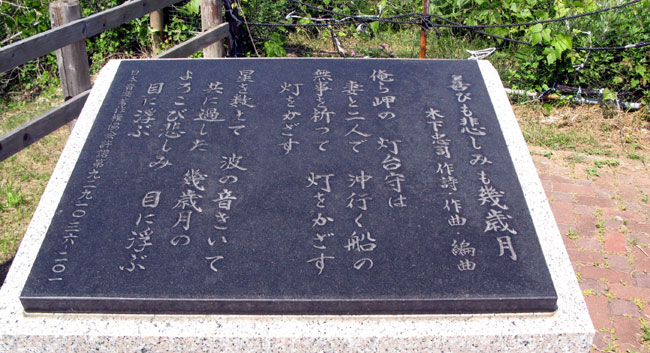 喜びも悲しみも幾歳月
木下忠司 作詩 作曲 編曲
俺ら岬の 灯台守は
妻と二人で 沖行く船の
無事を祈って 灯をかざす
灯をかざす
星を数えて 波の音きいて
共に過した 幾歳月の
よろこび悲しみ 目に浮ぶ
目に浮ぶ